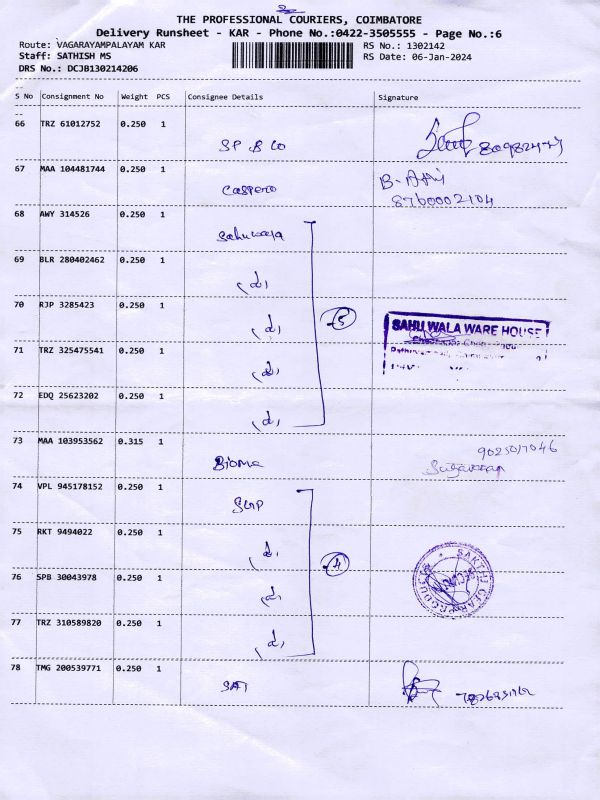 THE PROFESSIONAL COURIERS, COIMBATORE
Delivery Runsheet - KAR - Phone No.:0422-3505555 - Page No.:6
Route: VAGARAYAMPALAYAM KAR RS No.: 1302142
Staff: SATHISH MS RS Date: 06-Jan-2024
DRS No.: DCJB130214206
S No Consignment No Weight PCS Consignee Details Signature
66 TRZ 61012752 0.250 1
SP B CO
67 MAA 104481744 0.250 1 B-
Caspero 8760002104
68 AWY 314526 0.250 1
Sahuwala
69 BLR 280402462 0.250 1
70 RJP 3285423 0.250 1
5
SAHUWALA WARE HOUSE
71 TRZ 325475541 0.250 1
72 EDQ 25623202 0.250 1
73 MAA 103953562 0.315 1
9025017046
Bioma
74 VPL 945178152 0.250 1
SGP
75 RKT 9494022 0.250 1
4
SAKTHI GEAR PRODUCTS
76 SPB 30043978 0.250 1
77 TRZ 310589820 0.250 1
78 TMG 200539771 0.250 1
SAT